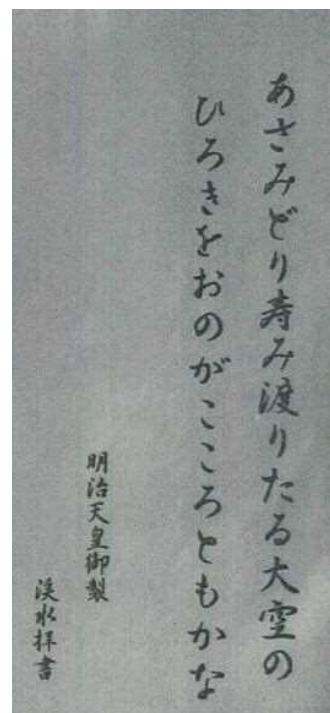 あさみどり寿み渡りたる大空の
ひろきをおのがこころともがな
明治天皇御製
渓水拝書